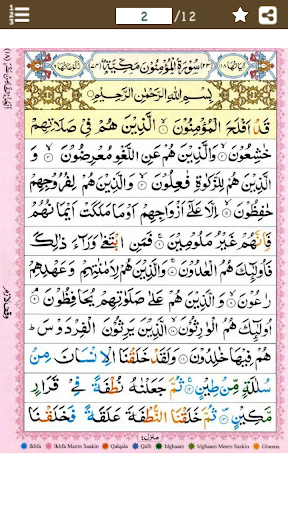 2 /12
سُوْرَةُ الْمُؤْمِنُوْنَ مَكِّيَّةٌ
بِسْمِ اللّٰهِ الرَّحْمٰنِ الرَّحِيْمِ
قَدْ اَفْلَحَ الْمُؤْمِنُوْنَ ۝ الَّذِيْنَ هُمْ فِيْ صَلَاتِهِمْ
خٰشِعُوْنَ ۝ وَالَّذِيْنَ هُمْ عَنِ اللَّغْوِ مُعْرِضُوْنَ ۝ وَ
الَّذِيْنَ هُمْ لِلزَّكٰوةِ فٰعِلُوْنَ ۝ وَالَّذِيْنَ هُمْ لِفُرُوْجِهِمْ
حٰفِظُوْنَ ۝ اِلَّا عَلٰٓى اَزْوَاجِهِمْ اَوْ مَا مَلَكَتْ اَيْمَانُهُمْ
فَاِنَّهُمْ غَيْرُ مَلُوْمِيْنَ ۝ فَمَنِ ابْتَغٰى وَرَآءَ ذٰلِكَ
فَاُولٰٓئِكَ هُمُ الْعٰدُوْنَ ۝ وَالَّذِيْنَ هُمْ لِاَمٰنٰتِهِمْ وَعَهْدِهِمْ
رٰعُوْنَ ۝ وَالَّذِيْنَ هُمْ عَلٰى صَلَوٰتِهِمْ يُحَافِظُوْنَ ۝
اُولٰٓئِكَ هُمُ الْوٰرِثُوْنَ ۝ الَّذِيْنَ يَرِثُوْنَ الْفِرْدَوْسَ ؕ
هُمْ فِيْهَا خٰلِدُوْنَ ۝ وَلَقَدْ خَلَقْنَا الْاِنْسَانَ مِنْ
سُلٰلَةٍ مِّنْ طِيْنٍ ۝ ثُمَّ جَعَلْنٰهُ نُطْفَةً فِيْ قَرَارٍ
مَّكِيْنٍ ۝ ثُمَّ خَلَقْنَا النُّطْفَةَ عَلَقَةً فَخَلَقْنَا
وقف لازم
منزل ٤
Ikhfa Ikhfa Meem Saakin Qalqala Qalb Idghaam Idghaam Meem Saakin Ghunna